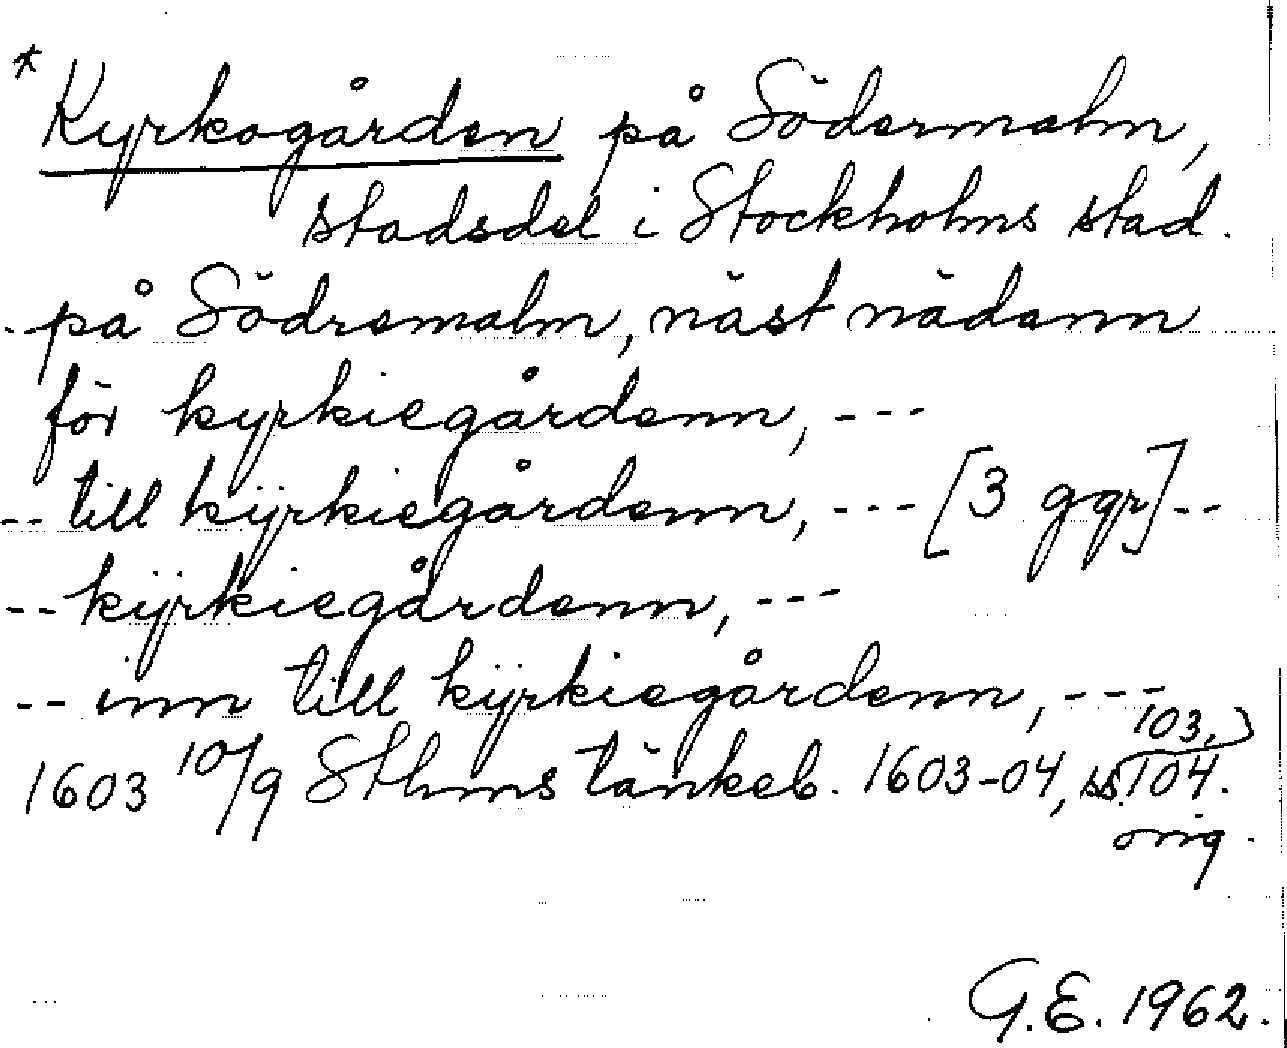 * Kyrkogården på Södermalm,
stadsdel i Stockholms stad.
- på Södremalm, näst nädann
för kyrkiegårdenn, ---
-- till kÿrkiegårdenn, --- [3 ggr] --
-- kÿrkiegårdenn, ---
-- inn till kÿrkiegårdenn, ---
1603 10/9 Sthms tänkeb. 1603-04, ss. 103, 104.
orig.
G.E. 1962.